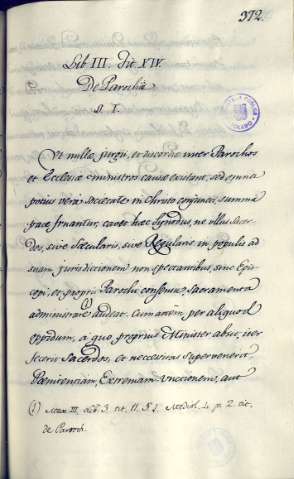 372.
Lib III. Tit XIV.
De Parochiâ
§. I.
Ut nullæ jurgii, et discordiæ inter Parochos
et Ecclesiæ ministros causæ existant, sed omnia
potius vera societate in Christo conjuncti summa
pace fruantur, cavet hæc Synodus, ne ullus Sacer-
dos, sive Sæcularis, sive Regularis in populis ad
suam jurisdictionem non spectantibus, sine Epis-
copi, et proprii Parochi consensu Sacramenta
administrare (1) audeat. Cum autem per aliquod
oppidum, a quo proprius Minister absit, iter
fecerit Sacerdos, et necessitas supervenerit
Pænitentiam, Extremam Unctionem, aut
(1) III. 3. tit. 11. § 1. 4. p. 2. tit.
de Paroch.